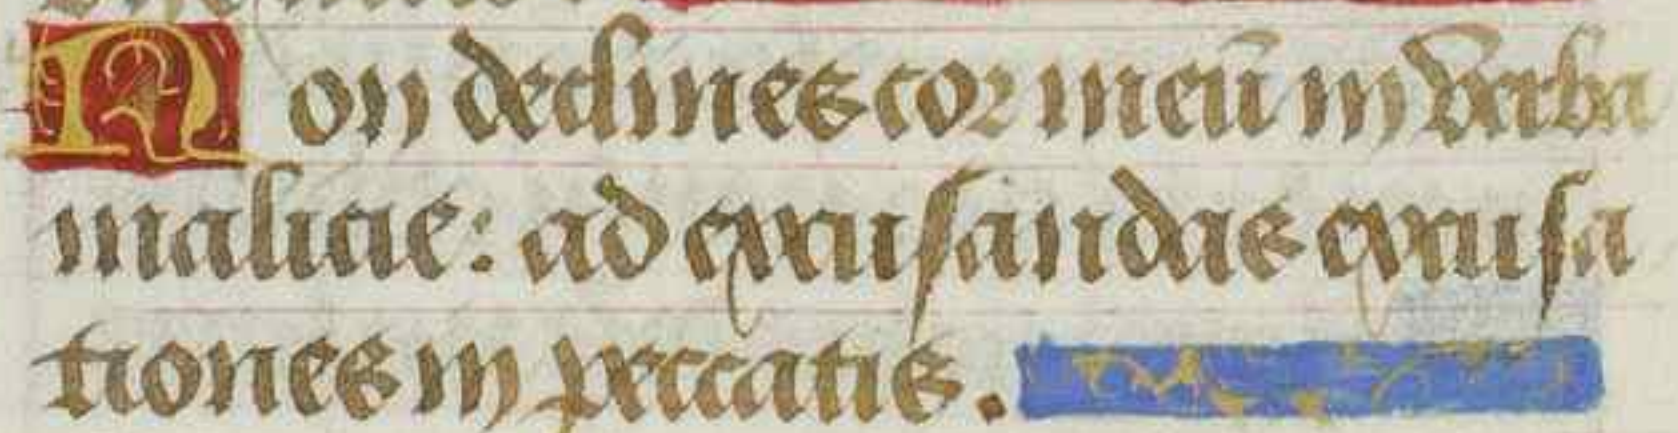 Non declines cor meū in verba
malicie: ad excusandas excusa
tiones in peccatis.